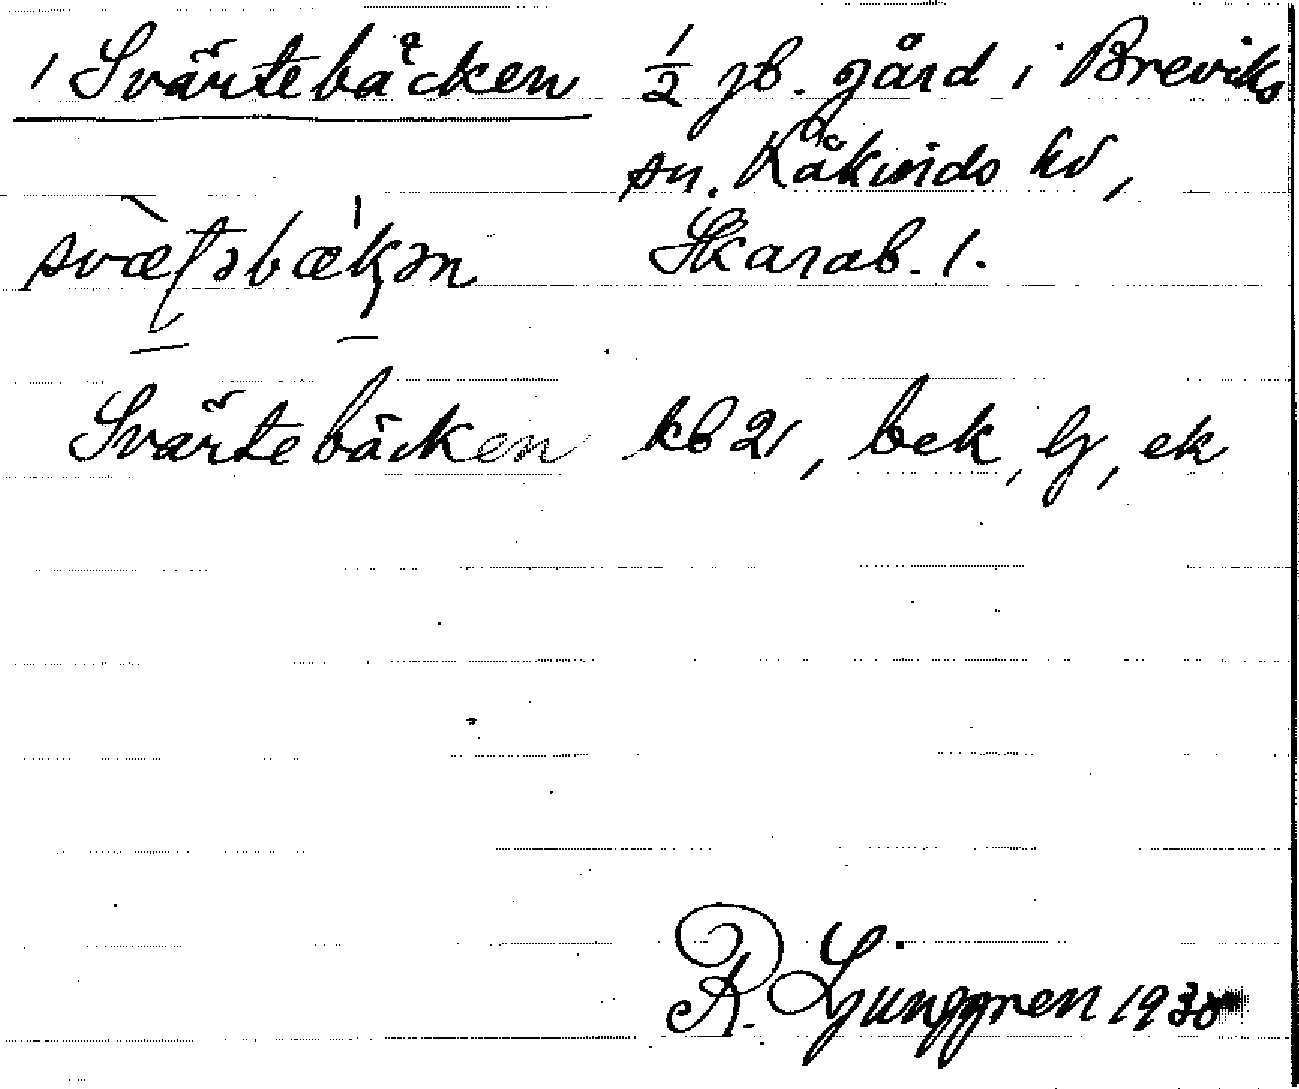 1 Svärtebäcken 1/2 jb. gård i Breviks
sn. Kåkinds hd,
Skarab. l.
Svärtebäcken kb 21, bek, lj, ek
R. Ljunggren 1930